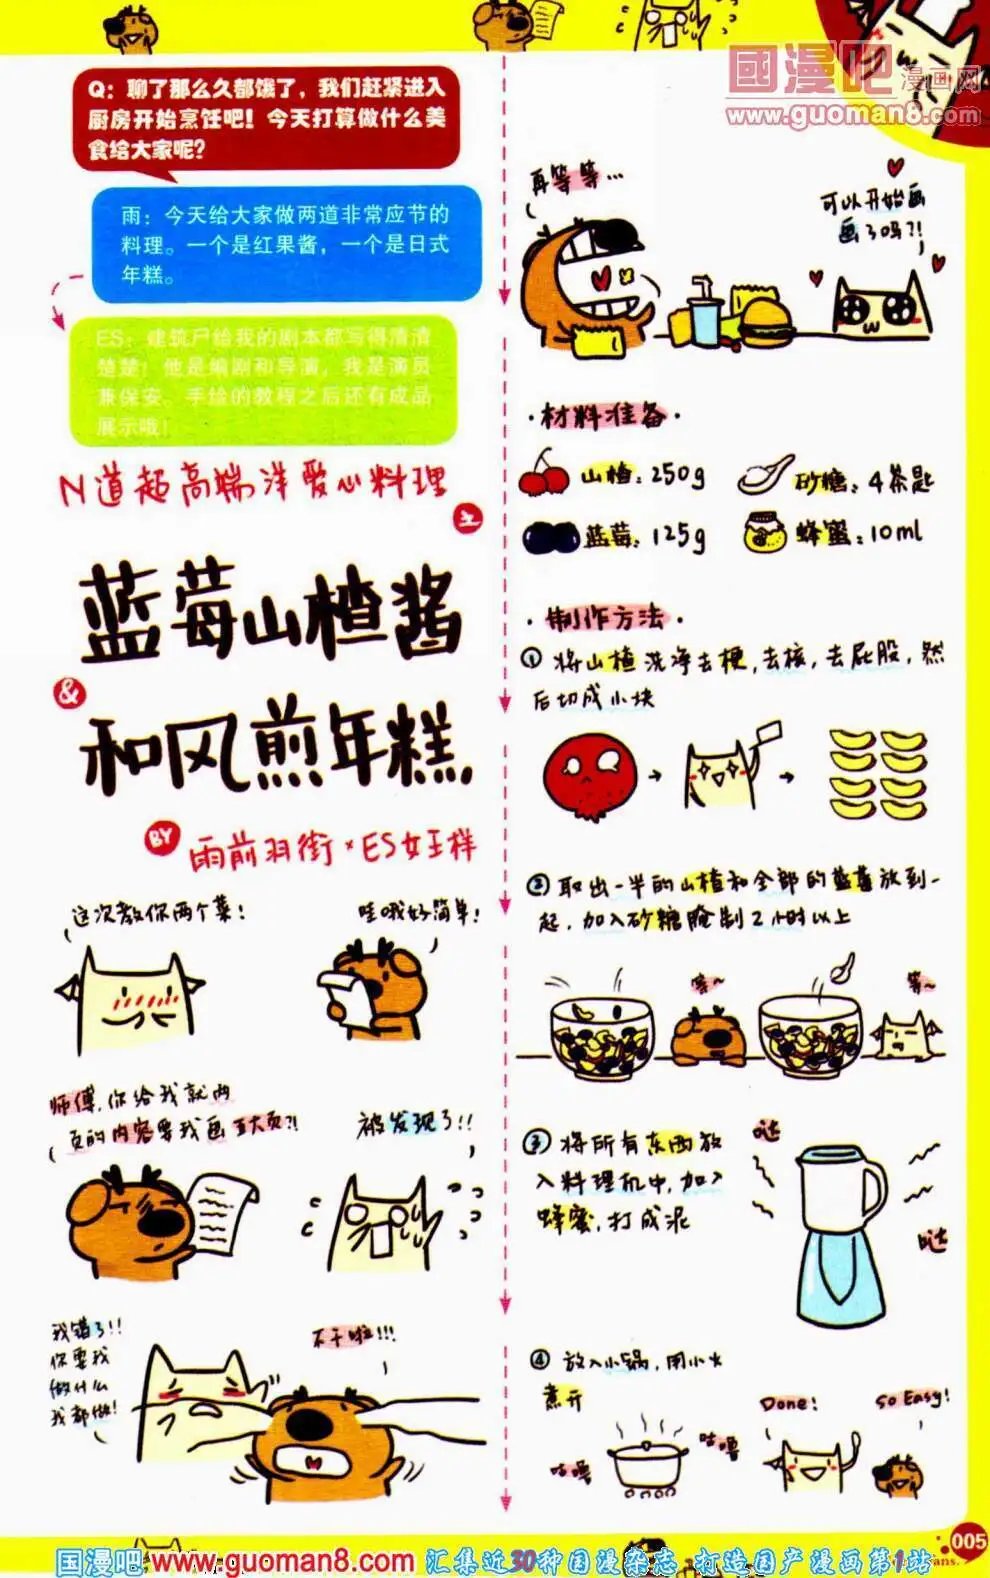 國漫吧 漫画网
www.guoman8.com
Q：聊了那么久都饿了，我们赶紧进入
厨房开始烹饪吧！今天打算做什么美
食给大家呢？
雨：今天给大家做两道非常应节的
料理。一个是红果酱，一个是日式
年糕。
ES：建筑尸给我的剧本都写得清清
楚楚！他是编剧和导演，我是演员
兼保安。手绘的教程之后还有成品
展示哦！
N道超高端洋爱心料理
之
蓝莓山楂酱
&
和风煎年糕
BY 雨前羽街×ES女王样
这次教你两个菜！
哇哦好简单！
师傅，你给我就两
页的内容要我画五大页?!
被发现了!!
我错了!!
你要我
做什么
我都做!
不干啦!!!
再等等…
可以开始画
画了吗?!
·材料准备·
山楂：250g
砂糖：4茶匙
蓝莓：125g
蜂蜜：10ml
·制作方法·
① 将山楂洗净去梗，去核，去屁股，然
后切成小块
② 取出一半的山楂和全部的蓝莓放到一
起，加入砂糖腌制2小时以上
等~
③ 将所有东西放
入料理机中，加入
蜂蜜，打成泥
哒
哒
④ 放入小锅，用小火
煮开
咕噜
咕噜
Done!
So Easy!
005
国漫吧 www.guoman8.com 汇集近30种国漫杂志 打造国产漫画第1站